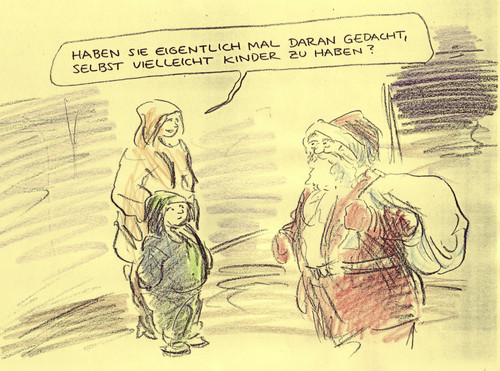 HABEN SIE EIGENTLICH MAL DARAN GEDACHT,
SELBST VIELLEICHT KINDER ZU HABEN?